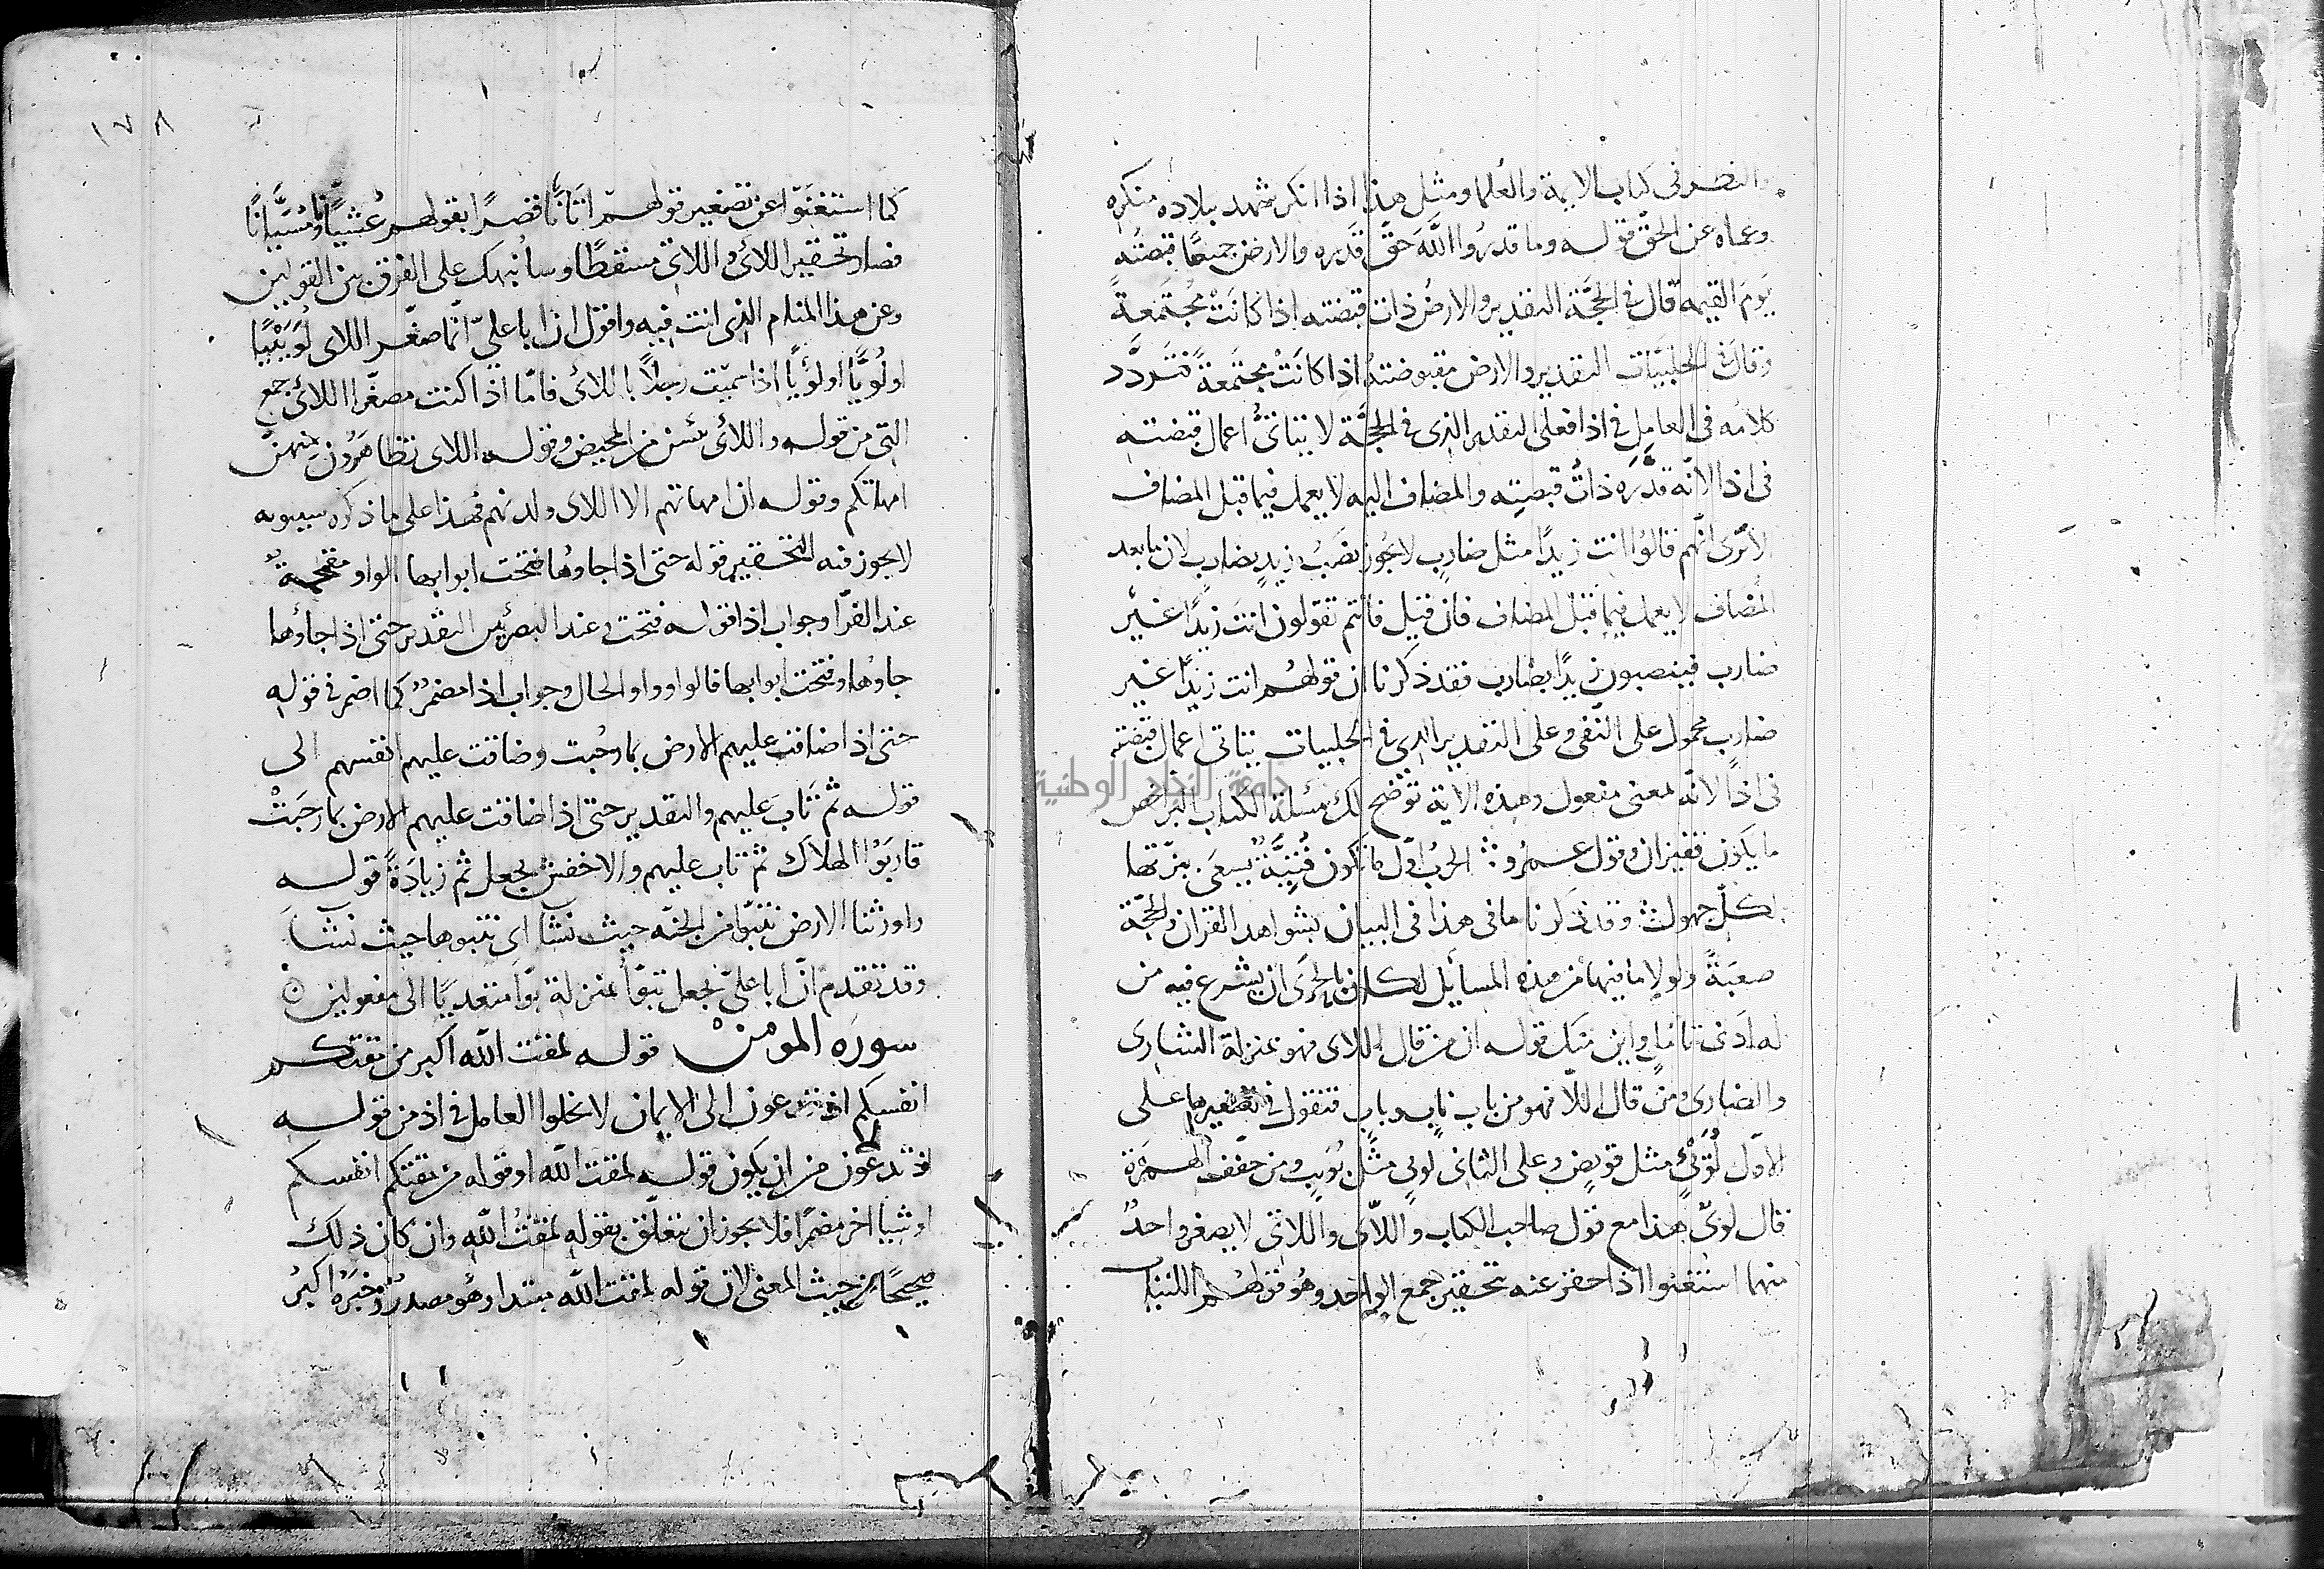 والنظر فى كتاب الايمة والعلما ومثل هذا اذا انكر شهد ببلاده منكره
وعماه عن الحق قوله وما قدروا اللَّهَ حقَّ قَدره والارض جميعًا قبضته
يَومَ القيمه قال فى الحجَّة التقدير والارضُ ذات قبضته اذا كانَتْ مُجتَمعةً
وقال فى الحلبيَّات التقدير والارض مقبوضته اذا كانَتْ مجتَمعةً فتردَّد
كلامُه فى العاملِ فى اذا فعلى التقدير الذى فى الحجَّة لا يتاتىُّ اعمال قبضته
فى اذا لانَّه قدَّره ذاتُ قبضتِه والمضاف اليه لا يعمل فيما قبل المضاف
لا تَرى انَّهم قالوُا انت زيدًا مثل ضاربٍ لا يَجوز نصَبُ زيدٍ بضارب لان ما بعد
المضاف لا يعمل فيما قبل المضاف فان قيل فانتم تقولون انتَ زيدًا غيْر
ضارب فينصبون زيدًا بضارب فقد ذكرنا ان قولهُم انت زيدًا غير
ضارب محمول على النَّفى وعلى التقدير الذى فى الحلبيات يتاتى اعمال قبضته
فى اذا لانَّه لمعنى مفعول وهذه الاية توُضح لك مسئلة الكتاب البُرّ ارخص
ما يكَون قفيزان وقول عمرُو ∴ الحربُ اوّل ما تكون فُتيّةٌ تسعَى ببزّتها
لكلّ جهول ∴ وقد ذكرنا ما فى هذا فى البيان بشواهد القران والحجّة
صعبَةً ولولا ما فيها من هذه المسائيل لكان بالحَرَى ان يشرع فيه من
له ادَنى تامّلٍ واين تبك قوله ان من قال اللاى فهو بمنزلة الشارى
والضارى ومَن قال اللاّ فهو من باب نابٍ وباب فتقول فى تصغيرها على
الاوّل لُوَيئٍ مثل قويضٍ وعلى الثانى لوئى مثل نُوَيبٍ ومن خفّف الهمزة
قال لوىّ هذا مع قول صاحب الكتاب واللاّى واللاتى لا يصغر واحدٌ
منهما استغنوا اذا حقر عنه بتحقير جمع الواحد وهُو قولهُم اللتيات
١٧٨
كما استغنَوا عن تصغير قولهم اتانَّا قصرًا بقولهم عُشيّانًا ومُسَيَّانًا
فصار تحقير اللائى واللاتى مسقطًا وسانُبهك على الفرق بين القولين
وعن هذا المنام الذى انت فيه واقول ان ابا علىّ انّما صغّر اللاى لُوَيئيًا
او لُوَيًّا او لؤيًا اذا سميّت رجلاً باللائى فامّا اذا كنت مصغّرا اللائى جمع
التى من قوله واللائى يئسن من المحيض وقوله اللاى تظاهَرُون منهنّ
امهاتكم وقوله ان امهاتهم الا اللاى ولدنهم فهذا على ما ذكره سيبويه
لا يجوز فيه التحقير قوله حتى اذا جاوُها فتحت ابوابها الواو مقحمةٌ
عند الفرّا وجواب اذا قوله فتحت وعند البصريّين التقدير حتى اذا جاؤها
جاوُها وفتحت ابوابها فالواو واو الحال وجواب اذا مضمرٌ كما اضمر فى قوله
حتى اذا ضاقت عليهم الارض بما رحُبت وضاقت عليهم انفسهم الى
قوله ثم تَابَ عليهم والتقدير حتى اذا ضاقت عليهم الارض بما رحبَتْ
قاربَوُا الهلاك ثم تاب عليهم والاخفش يجعل ثم زيادَةً قوله
واورثنا الارض نتبوّا من الجنّه حيث نشا اى نتبوها حيث نشا
وقد تقدم انّ ابا علىّ يجعل تبوّأ بمنزلة بوّا متعديًا الى مفعولين
سورة المومنْ قوله لمقت الله اكبر من مقتكم
انفسكم اذ تدعون الى الايمان لا يخلوا العامل فى اذ من قوله
اذ تدعون من ان يكون قوله لمقت الله او قوله من مقتكم انفسكم
او شيا اخر مضمرًا فلا يجوز ان تعلّق بقوله لمقتُ الله وان كان ذلك
صحيحًا من حيث المعنى لان قوله لمقت الله مبتدا وهُو مصدرٌ وخبرُه اكبرُ
جامعة النجاح الوطنية